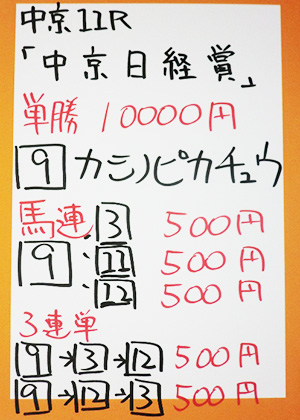 中京11R
「中京日経賞」
単勝 10000円
9 カシノピカチュウ
馬連 3 500円
9 : 11 500円
: 12 500円
3連単
9→3→12 500円
9→12→3 500円